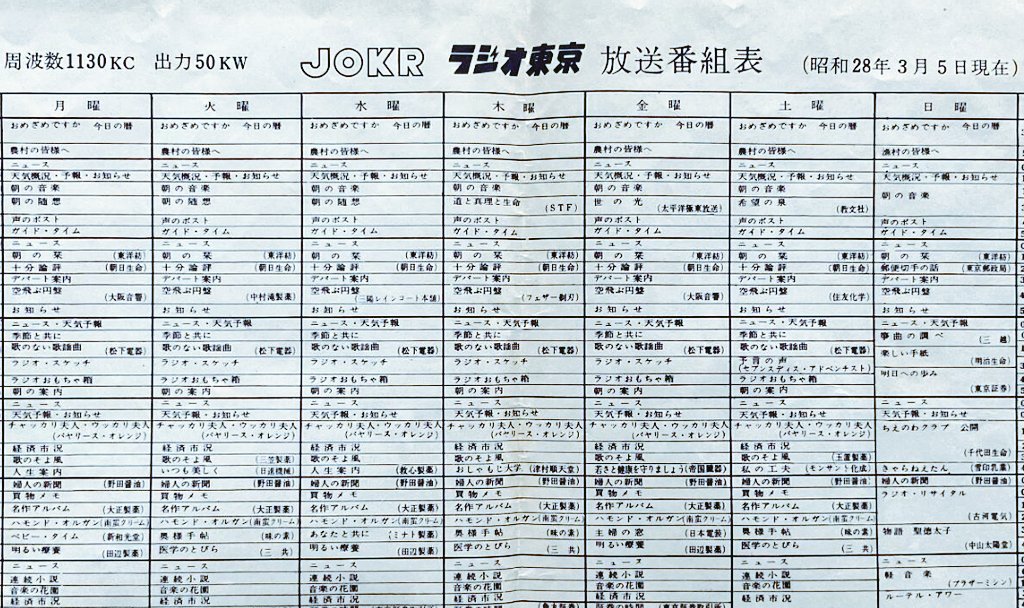 周波数1130KC 出力50KW JOKR ラジオ東京 放送番組表 (昭和28年3月5日現在)
月曜 火曜 水曜 木曜 金曜 土曜 日曜
おめざめですか 今日の暦 おめざめですか 今日の暦 おめざめですか 今日の暦 おめざめですか 今日の暦 おめざめですか 今日の暦 おめざめですか 今日の暦 おめざめですか 今日の暦
農村の皆様へ 農村の皆様へ 農村の皆様へ 農村の皆様へ 農村の皆様へ 農村の皆様へ 漁村の皆様へ
ニュース ニュース ニュース ニュース ニュース ニュース ニュース
天気概況・予報・お知らせ 天気概況・予報・お知らせ 天気概況・予報・お知らせ 天気概況・予報・お知らせ 天気概況・予報・お知らせ 天気概況・予報・お知らせ 天気概況・予報・お知らせ
朝の音楽 朝の音楽 朝の音楽 朝の音楽 朝の音楽 朝の音楽 朝の音楽
朝の随想 朝の随想 朝の随想 道と真理と生命 (STF) 世の光 (太平洋極東放送) 希望の泉 (教文社)
声のポスト 声のポスト 声のポスト 声のポスト 声のポスト 声のポスト 声のポスト
ガイド・タイム ガイド・タイム ガイド・タイム ガイド・タイム ガイド・タイム ガイド・タイム ガイド・タイム
ニュース ニュース ニュース ニュース ニュース ニュース ニュース
朝の栞 (東洋紡) 朝の栞 (東洋紡) 朝の栞 (東洋紡) 朝の栞 (東洋紡) 朝の栞 (東洋紡) 朝の栞 (東洋紡) 朝の栞 (東洋紡)
十分論評 (朝日生命) 十分論評 (朝日生命) 十分論評 (朝日生命) 十分論評 (朝日生命) 十分論評 (朝日生命) 十分論評 (朝日生命) 郵便切手の話 (東京郵政局)
デパート案内 デパート案内 デパート案内 デパート案内 デパート案内 デパート案内 デパート案内
空飛ぶ円盤 (大阪音響) 空飛ぶ円盤 (中村滝製薬) 空飛ぶ円盤 (三陽レインコート本舗) 空飛ぶ円盤 (フェザー剃刃) 空飛ぶ円盤 (大阪音響) 空飛ぶ円盤 (住友化学) 空飛ぶ円盤
お知らせ お知らせ お知らせ お知らせ お知らせ お知らせ お知らせ
ニュース・天気予報 ニュース・天気予報 ニュース・天気予報 ニュース・天気予報 ニュース・天気予報 ニュース・天気予報 ニュース・天気予報
季節と共に 季節と共に 季節と共に 季節と共に 季節と共に 季節と共に 箏曲の調べ (三越)
歌のない歌謡曲 (松下電器) 歌のない歌謡曲 (松下電器) 歌のない歌謡曲 (松下電器) 歌のない歌謡曲 (松下電器) 歌のない歌謡曲 (松下電器) 歌のない歌謡曲 (松下電器) 楽しい手紙 (明治生命)
ラジオ・スケッチ ラジオ・スケッチ ラジオ・スケッチ ラジオ・スケッチ ラジオ・スケッチ 予言の声 (セブンスデイス・アドベンチスト) 明日への歩み (東京証券)
ラジオおもちゃ箱 ラジオおもちゃ箱 ラジオおもちゃ箱 ラジオおもちゃ箱 ラジオおもちゃ箱 ラジオおもちゃ箱
朝の案内 朝の案内 朝の案内 朝の案内 朝の案内 朝の案内
ニュース ニュース ニュース ニュース ニュース ニュース ニュース
天気予報・お知らせ 天気予報・お知らせ 天気予報・お知らせ 天気予報・お知らせ 天気予報・お知らせ 天気予報・お知らせ 天気予報・お知らせ
チャッカリ夫人・ウッカリ夫人 チャッカリ夫人・ウッカリ夫人 チャッカリ夫人・ウッカリ夫人 チャッカリ夫人・ウッカリ夫人 チャッカリ夫人・ウッカリ夫人 チャッカリ夫人・ウッカリ夫人 ちえのわクラブ 公開
(バヤリース・オレンジ) (バヤリース・オレンジ) (バヤリース・オレンジ) (バヤリース・オレンジ) (バヤリース・オレンジ) (バヤリース・オレンジ)
経済市況 経済市況 経済市況 経済市況 経済市況 経済市況 (千代田生命)
歌のそよ風 歌のそよ風 (三笠製薬) 歌のそよ風 歌のそよ風 歌のそよ風 歌のそよ風 (玉置製薬)
人生案内 いつも美しく (日運機械) 人生案内 (救心製薬) おしゃもじ大学 (津村順天堂) 若さと健康を守りましょう (帝国臓器) 私の工夫 (モンサント化成) きゃらねえたん (雪印乳業)
婦人の新聞 (野田醤油) 婦人の新聞 (野田醤油) 婦人の新聞 (野田醤油) 婦人の新聞 (野田醤油) 婦人の新聞 (野田醤油) 婦人の新聞 (野田醤油) 婦人の新聞 (野田醤油)
買物メモ 買物メモ 買物メモ 買物メモ 買物メモ 買物メモ ラジオ・リサイタル
名作アルバム (大正製薬) 名作アルバム (大正製薬) 名作アルバム (大正製薬) 名作アルバム (大正製薬) 名作アルバム (大正製薬) 名作アルバム (大正製薬) (古河電気)
ハモンド・オルガン(南蛮クリーム) ハモンド・オルガン(南蛮クリーム) ハモンド・オルガン(南蛮クリーム) ハモンド・オルガン(南蛮クリーム) ハモンド・オルガン(南蛮クリーム) ハモンド・オルガン(南蛮クリーム)
ベビー・タイム (新和光堂) 奥様手帖 (味の素) あなたと共に (ミナト製薬) 奥様手帖 (味の素) 主婦の窓 (日本電装) 奥様手帖 (味の素) 物語 聖徳太子 (中山太陽堂)
明るい療養 (田辺製薬) 医学のとびら (三共) 明るい療養 (田辺製薬) 医学のとびら (三共) 明るい療養 (田辺製薬) 医学のとびら (三共)
ニュース ニュース ニュース ニュース ニュース ニュース ニュース
連続小説 連続小説 連続小説 連続小説 連続小説 連続小説 軽音楽
音楽の花園 音楽の花園 音楽の花園 音楽の花園 音楽の花園 音楽の花園 (ブラザーミシン)
経済市況 経済市況 経済市況 経済市況 経済市況 経済市況 ルーテル・アワー